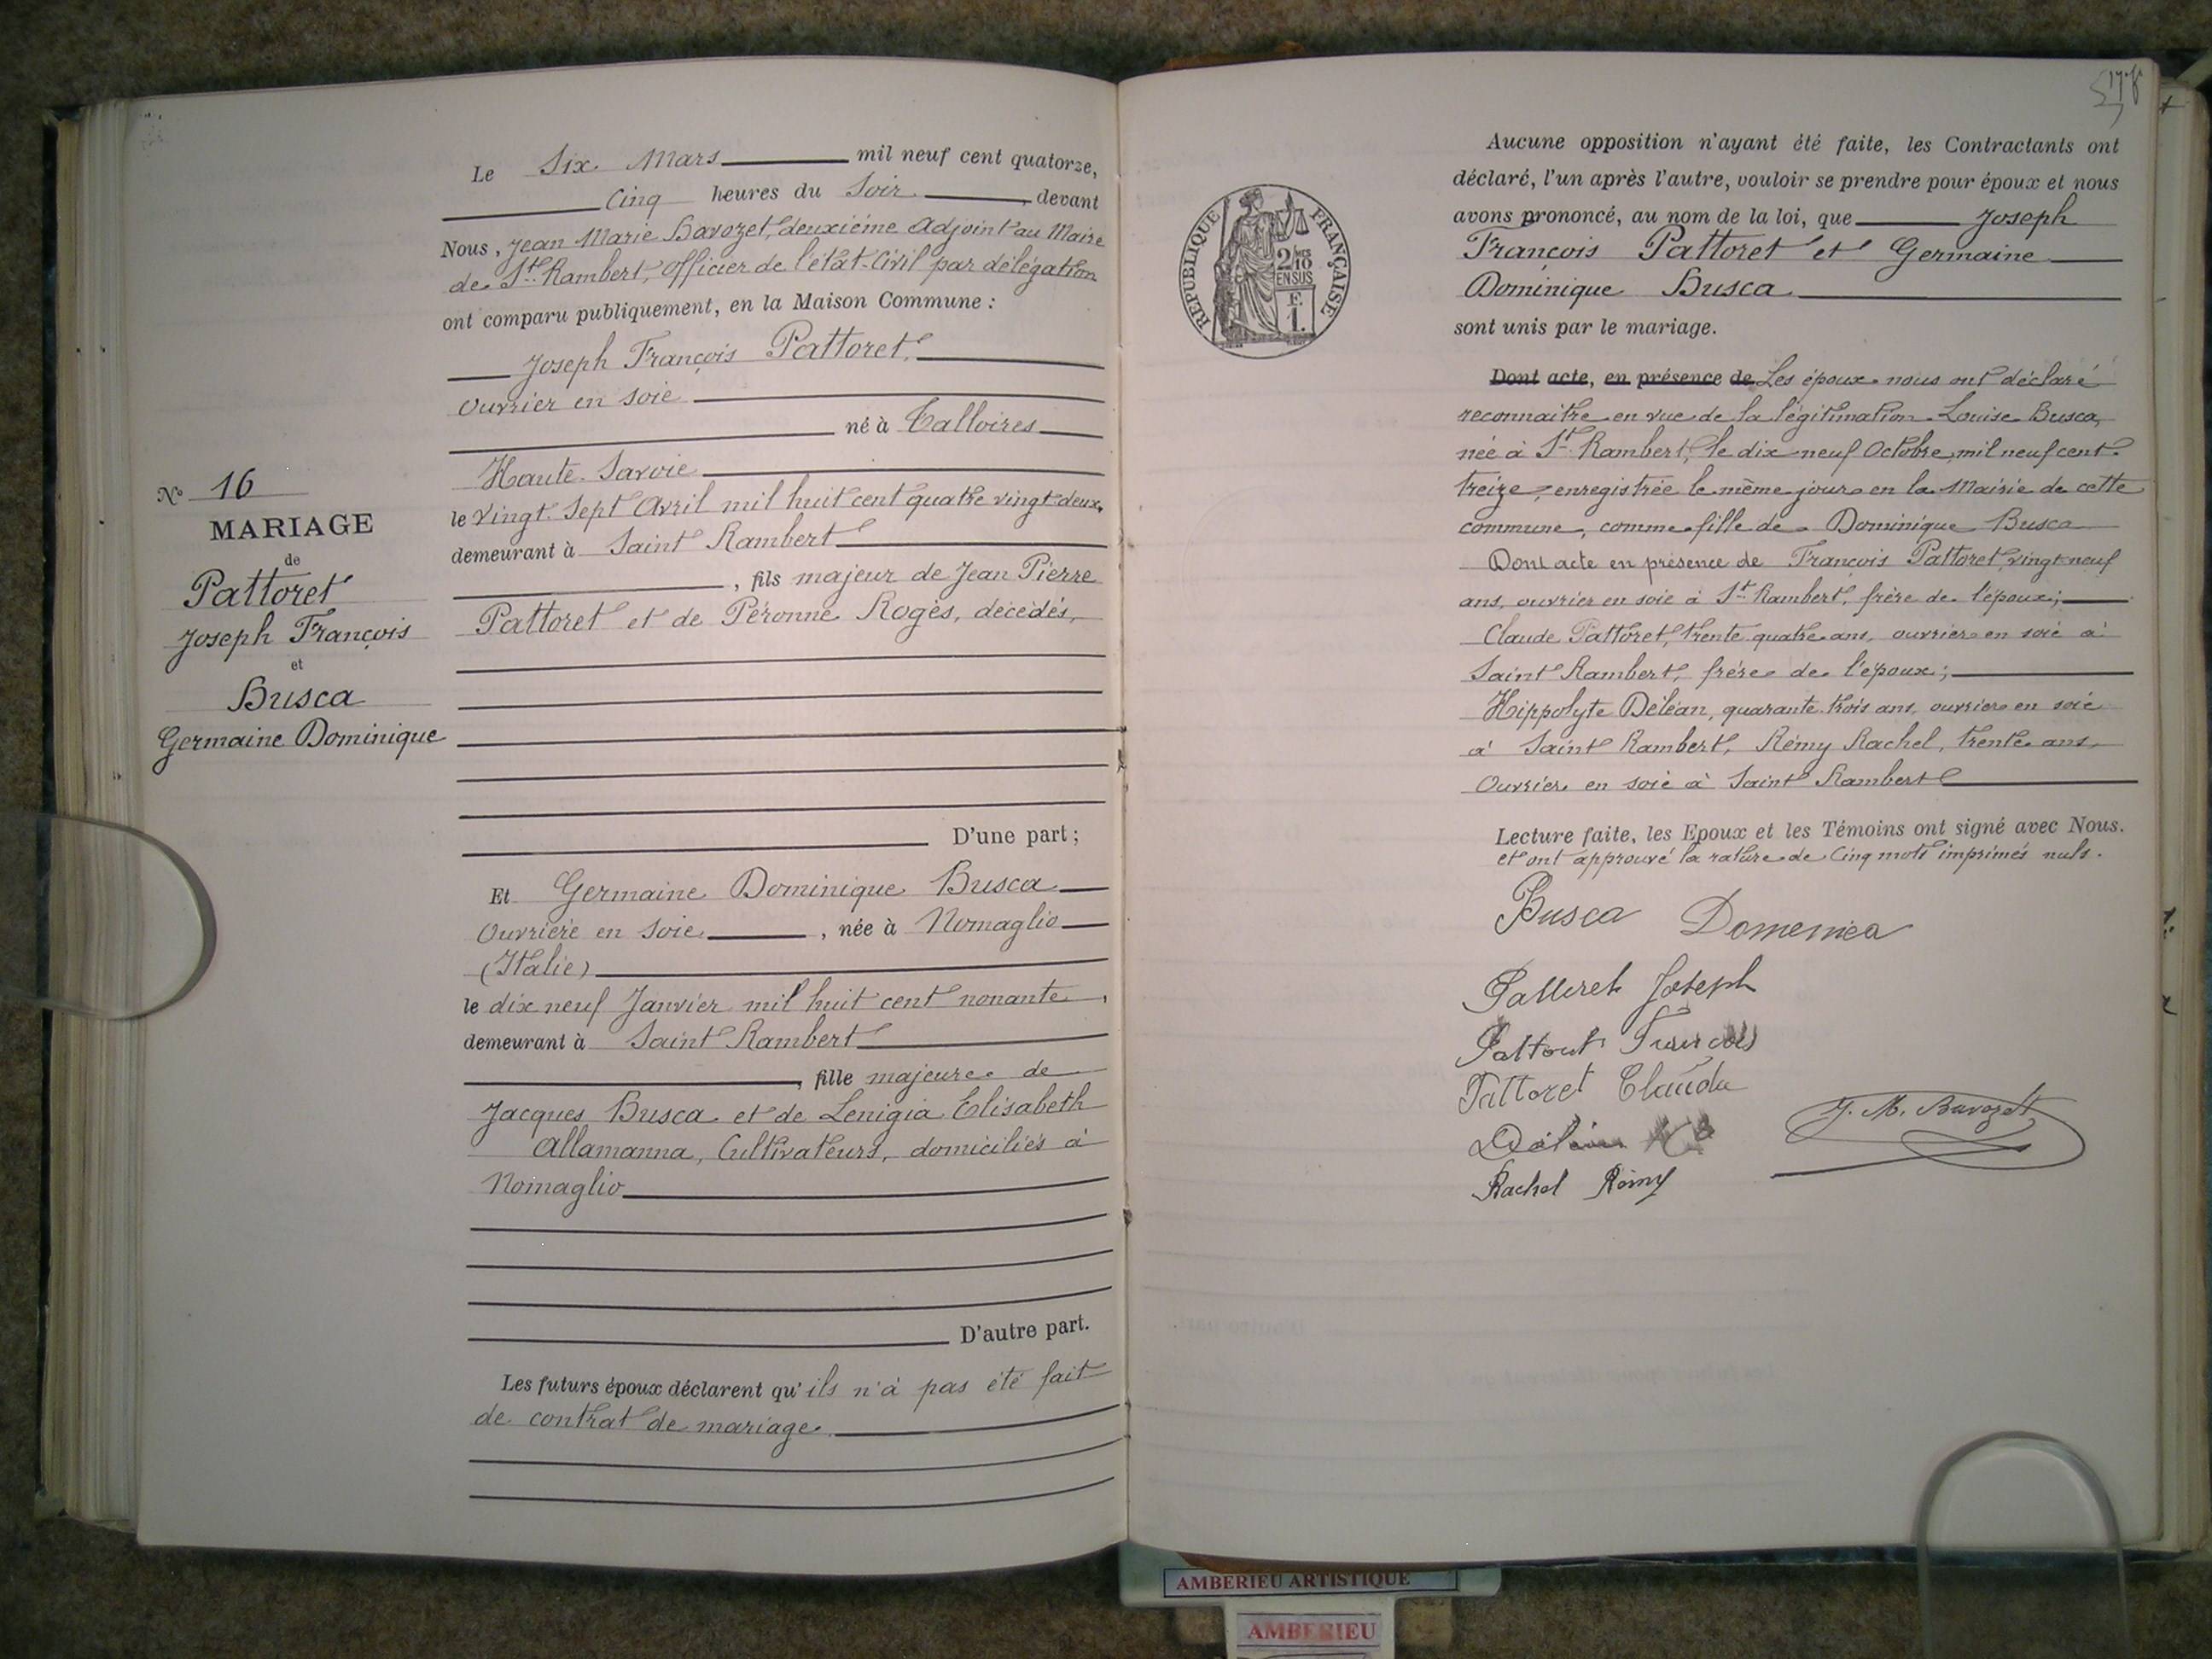 N° 16
MARIAGE
de
Pattoret
Joseph François
et
Busca
Germaine Dominique
Le Six Mars mil neuf cent quatorze,
Cinq heures du Soir, devant
Nous, Jean Marie Bavozet, deuxième Adjoint au Maire
de St Rambert, Officier de l'état-Civil par délégation
ont comparu publiquement, en la Maison Commune :
Joseph François Pattoret,
Ouvrier en soie
né à Talloires
Haute-Savoie
le vingt-sept Avril mil huit cent quatre vingt-deux,
demeurant à Saint Rambert
, fils majeur de Jean Pierre
Pattoret et de Péronne Rogès, décédés,
D'une part ;
Et Germaine Dominique Busca
Ouvrière en soie, née à Nomaglio
(Italie)
le dix neuf Janvier mil huit cent nonante,
demeurant à Saint Rambert
, fille majeure de
Jacques Busca et de Lenigia Elisabeth
Allamanna, Cultivateurs, domiciliés à
Nomaglio
D'autre part.
Les futurs époux déclarent qu'ils n'à pas été fait
de contrat de mariage.
RÉPUBLIQUE FRANÇAISE
2/10
EN SUS
F.
1.
Aucune opposition n'ayant été faite, les Contractants ont
déclaré, l'un après l'autre, vouloir se prendre pour époux et nous
avons prononcé, au nom de la loi, que Joseph
François Pattoret et Germaine
Dominique Busca
sont unis par le mariage.
Dont acte, en présence de Les époux nous ont déclaré
reconnaitre en vue de la légitimation Louise Busca,
née à St Rambert, le dix neuf Octobre mil neuf cent
treize, enregistrée le même jour en la Mairie de cette
commune, comme fille de Dominique Busca
Dont acte en présence de François Pattoret, vingt neuf
ans, ouvrier en soie à St Rambert, frère de l'époux ;
Claude Pattoret, trente quatre ans, ouvrier en soie à
Saint Rambert, frère de l'époux ;
Hippolyte Déléan, quarante trois ans, ouvrier en soie
à Saint Rambert, Rémy Rachel, trente ans,
Ouvrier en soie à Saint Rambert
Lecture faite, les Epoux et les Témoins ont signé avec Nous.
et ont approuvé la rature de Cinq mots imprimés nuls.
Busca Domenica
Patteret Joseph
Pattoret François
Pattoret Claude
J. M. Bavozet
Déléan
Rachel Rémy
AMBERIEU ARTISTIQUE
AMBERIEU